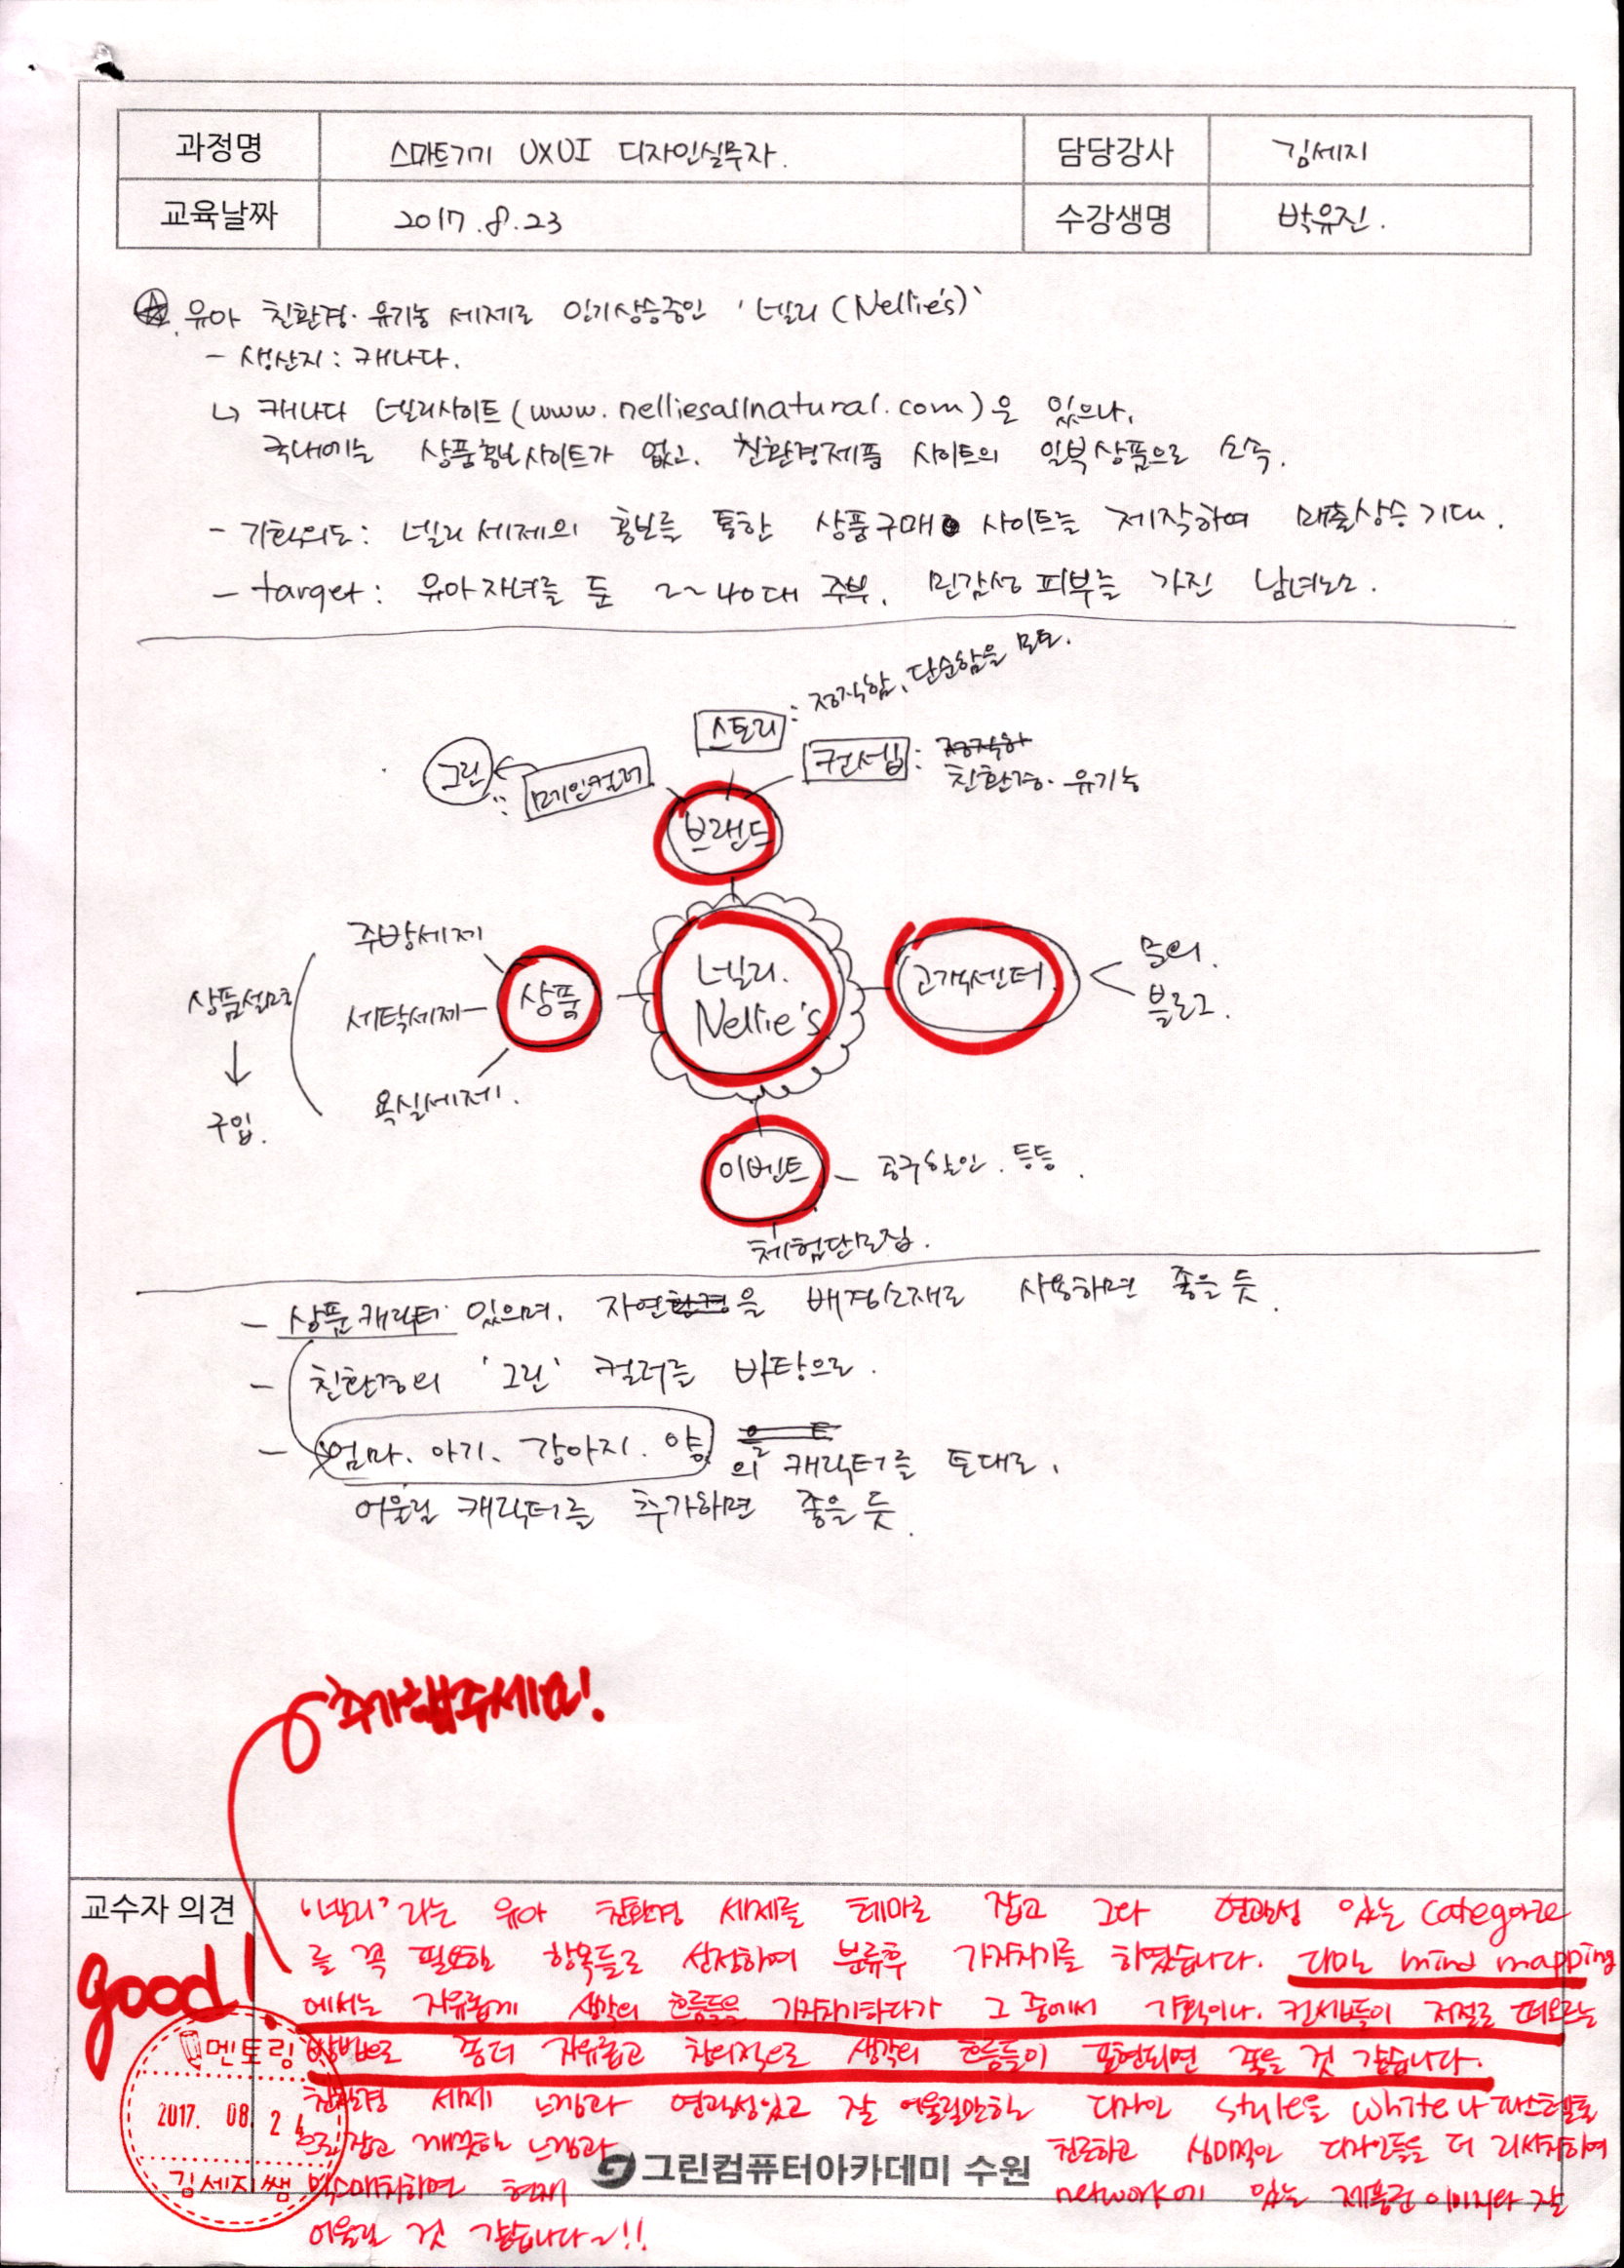 과정명 스마트기기 UXUI 디자인실무자. 담당강사 김세지
교육날짜 2017.8.23 수강생명 박유진.
유아 친환경·유기농 세제로 인기상승중인 '넬리(Nellie's)'
- 생산지: 캐나다.
↳ 캐나다 넬리사이트(www.nelliesallnatural.com)은 있으나,
국내에는 상품홍보사이트가 없고, 친환경제품 사이트의 일부상품으로 소속.
- 기획의도: 넬리세제의 홍보를 통한 상품구매 사이트를 제작하여 매출상승기대.
- target: 유아자녀를 둔 2~40대 주부, 민감성 피부를 가진 남녀노소.
스토리 : 정직함, 단순함을 모토.
컨셉 : 친환경·유기농
그린 메인컬러
브랜드
주방세제
세탁세제
욕실세제.
상품
상품설명
↓
구입.
넬리.
Nellie's
고객센터
문의.
블로그.
이벤트 - 공구할인. 등등.
체험단모집.
- 상품캐릭터 있으며, 자연을 배경소재로 사용하면 좋을듯.
- 친환경의 '그린' 컬러를 바탕으로.
- 엄마. 아기. 강아지. 양 의 캐릭터를 토대로,
어울릴 캐릭터를 추가하면 좋을듯.
추가해주세요!
교수자 의견
good!
'넬리'라는 유아 친환경 세제를 테마로 잡고 그와 연관성 있는 categorie
를 꼭 필요한 항목들로 선정하여 분류후 가지치기를 하였습니다. 다만 mind mapping
에서는 자유롭게 생각의 흐름들을 가지치기하다가 그 중에서 기획이나. 컨셉들이 저절로 떠오르는
방법으로 좀더 자유롭고 창의적으로 생각의 흐름들이 표현되면 좋을 것 같습니다.
친환경 세제 느낌과 연관성있고 잘 어울릴만한 디자인 style을 white나 파스텔톤
으로 잡고 깨끗한 느낌과 친근하고 심미적인 디자인들을 더 리서치하여
믹스매치하면 현재 network에 있는 제품군 이미지와 잘
어울릴 것 같습니다~!!
멘토링
2017. 08. 24
김세지쌤
그린컴퓨터아카데미 수원